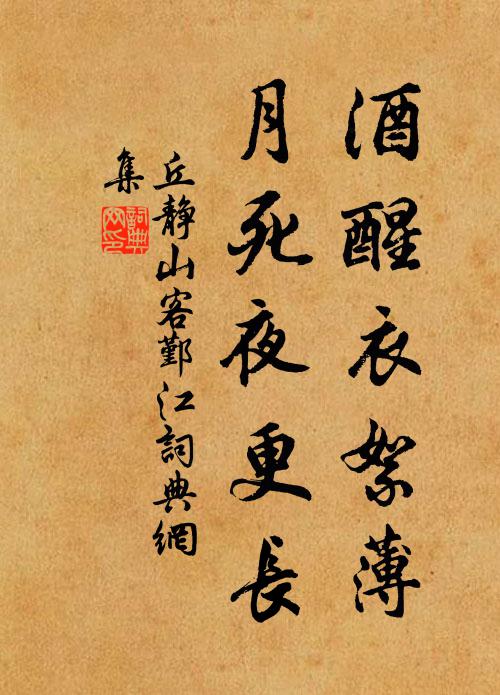 酒醒衣絮薄
月死夜更長
丘靜山客鄞江詞典網
集
詞典
网印